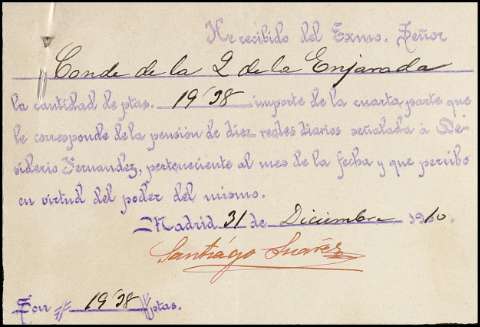 He recibido del Exmo. Señor
Conde de la Q de la Enjarada
la cantidad de ptas. 19'38 importe de la cuarta parte que
le corresponde de la pensión de diez reales diarios señalada à De-
siderio Fernandez, perteneciente al mes de la fecha y que percibo
en virtud del poder del mismo.
Madrid 31 de Diciembre 1910.
Santiágo Suarez
Son 19'38 ptas.